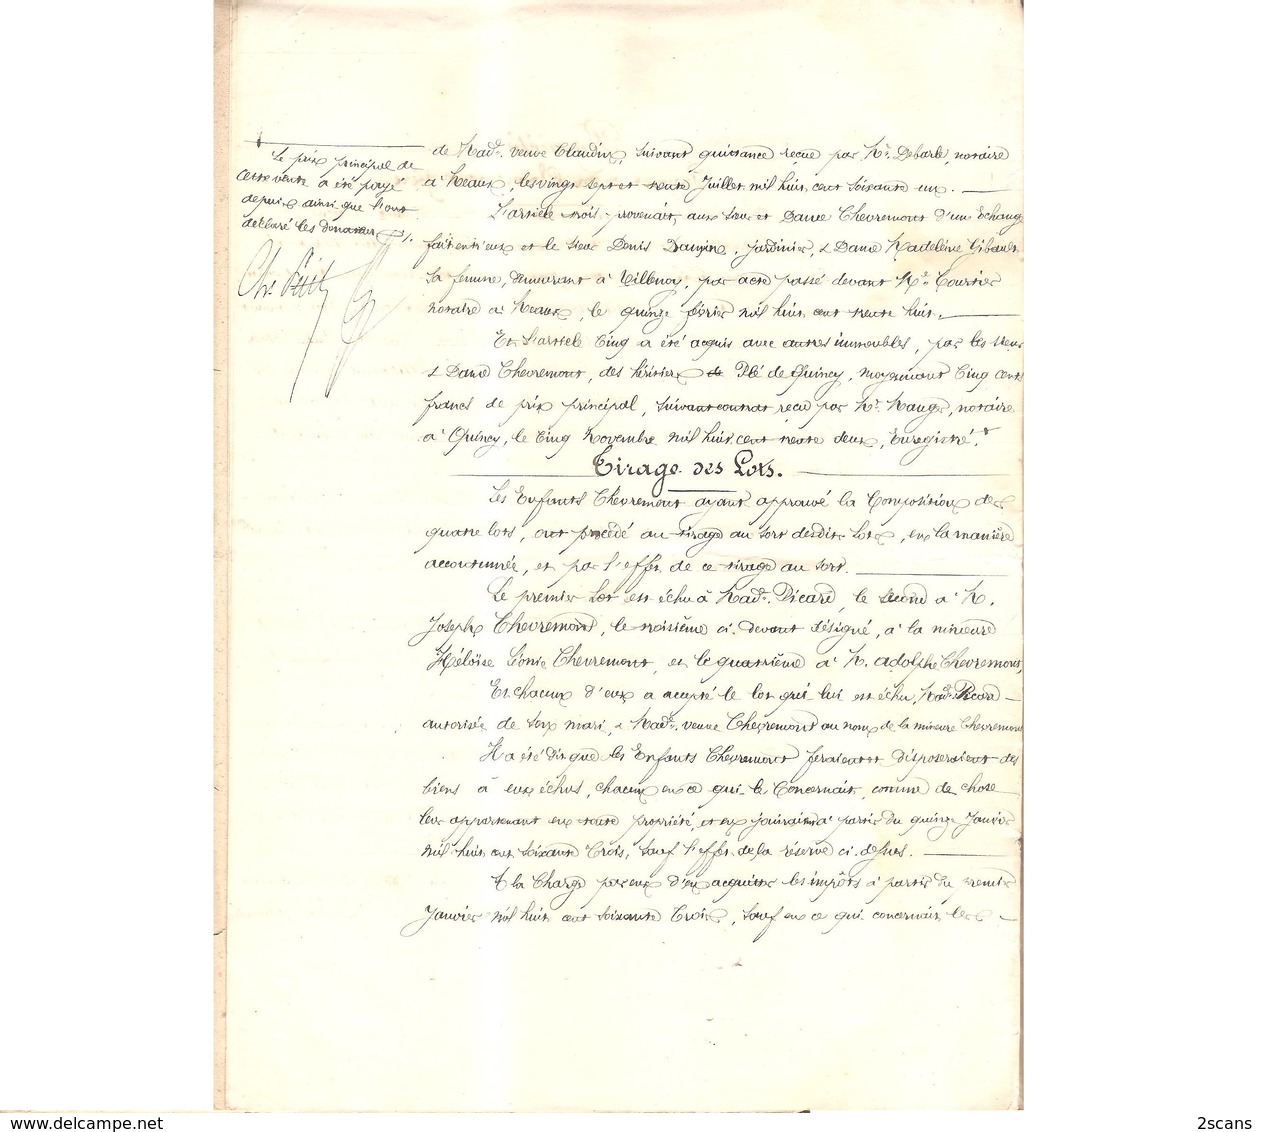 Le prix principal de
cette vente a été payé
depuis ainsi que l'ont
déclaré les donateurs
de Made. veuve Claudin, suivant quittance reçue par Me. Debarle, notaire
à Meaux, les vingt sept et trente Juillet mil huit cent soixante un.
L'article trois provenait aux sieur et Dame Chevremont d'un Echange
fait entr'eux et le sieur Denis Dauvin, jardinier, & Dame Madeleine Gibault
sa femme, demeurant à Villenoy, par acte passé devant Me. Courtier
notaire à Meaux, le quinze février mil huit cent trente huit.
Et L'article Cinq a été acquis avec autres immeubles, par les sieur
& Dame Chevremont, des héritiers de Plé de Quincy, moyennant Cinq cents
francs de prix principal, suivant contrat reçu par Me. Mauger, notaire
à Quincy, le Cinq Novembre mil huit cent trente deux, Enregistré.
Tirage des Lots.
Les Enfants Chevremont ayant approuvé la Composition des
quatre lots, ont procédé au tirage au sort desdits Lots, en la manière
accoutumée, et par l'effet de ce tirage au sort.
Le premier Lot est échu à Made. Picard, le second à M.
Joseph Chevremont, le troisième ci-devant désigné, à la mineure
Héloïse Léonie Chevremont, et le quatrième à M. Adolphe Chevremont,
Et chacun d'eux a accepté le lot qui lui est échu, Made. Picard
autorisée de son mari, & Made. veuve Chevremont au nom de la mineure Chevremont
Il a été dit que les Enfants Chevremont feraient et disposeraient des
biens à eux échus, chacun en ce qui le Concernait, comme de chose
leur appartenant en toute propriété, et en jouiraient à partir du quinze Janvier
mil huit cent soixante Trois, sauf l'effet de la réserve ci-dessus.
A la Charge par eux d'en acquitter les impôts à partir du premier
Janvier mil huit cent soixante Trois, sauf en ce qui concernait les
2scans